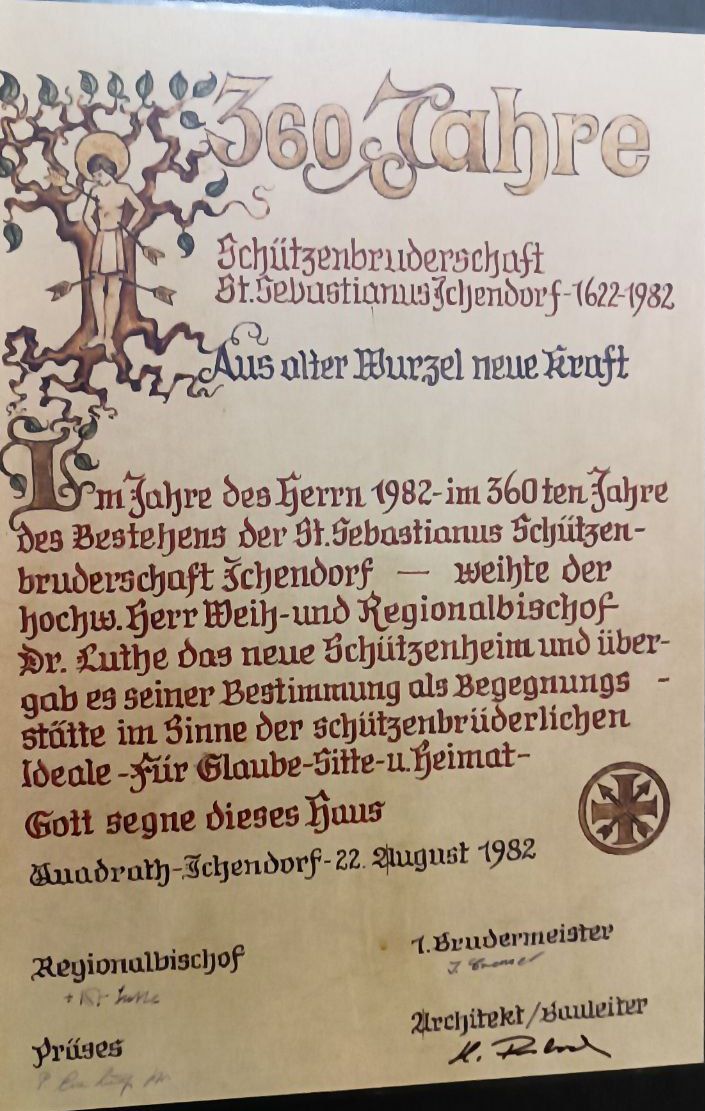 360 Jahre
Schützenbruderschaft
St. Sebastianus Ichendorf - 1622-1982
Aus alter Wurzel neue Kraft
Im Jahre des Herrn 1982 - im 360ten Jahre
des Bestehens der St. Sebastianus Schützen-
bruderschaft Ichendorf — weihte der
hochw. Herr Weih- und Regionalbischof
Dr. Luthe das neue Schützenheim und über-
gab es seiner Bestimmung als Begegnungs -
stätte im Sinne der schützenbrüderlichen
Ideale - Für Glaube - Sitte - u. Heimat -
Gott segne dieses Haus
Quadrath-Ichendorf - 22. August 1982
Regionalbischof
1. Brudermeister
Architekt/Bauleiter
Präses